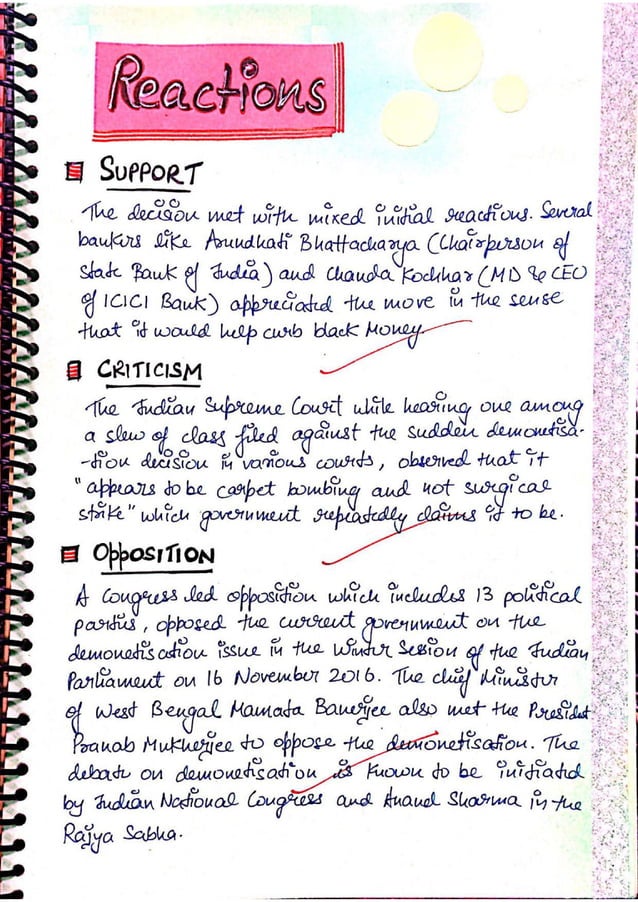 Reactions
SUPPORT
The decision met with mixed initial reactions. Several
bankers like Arundhati Bhattacharya (Chairperson of
State Bank of India) and Chanda Kochhar (MD & CEO
of ICICI Bank) appreciated the move in the sense
that it would help curb black Money.
CRITICISM
The Indian Supreme Court while hearing one among
a slew of class filed against the sudden demonetisa-
-tion decision in various courts, observed that it
"appears to be carpet bombing and not surgical
strike" which government repeatedly claims it to be.
OPPOSITION
A Congress led opposition which includes 13 political
parties, opposed the current government on the
demonetisation issue in the Winter Session of the Indian
Parliament on 16 November 2016. The chief Minister
of West Bengal Mamata Banerjee also met the President
Pranab Mukherjee to oppose the demonetisation. The
debate on demonetisation is known to be initiated
by Indian National Congress and Anand Sharma in the
Rajya Sabha.